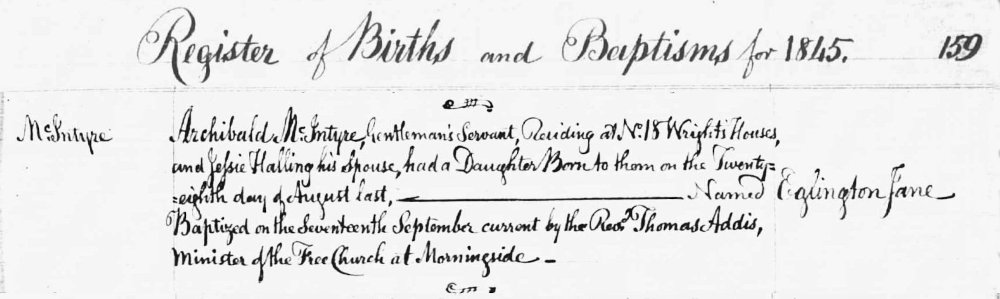 Register of Births and Baptisms for 1845. 159
McIntyre
Archibald McIntyre, Gentleman's Servant, Residing at No. 18 Wright's Houses,
and Jessie Halling his Spouse, had a Daughter Born to them on the Twenty=
=eighth day of August last, Named Eglington Jane
Baptized on the Seventeenth September current by the Revd. Thomas Addis,
Minister of the Free Church at Morningside